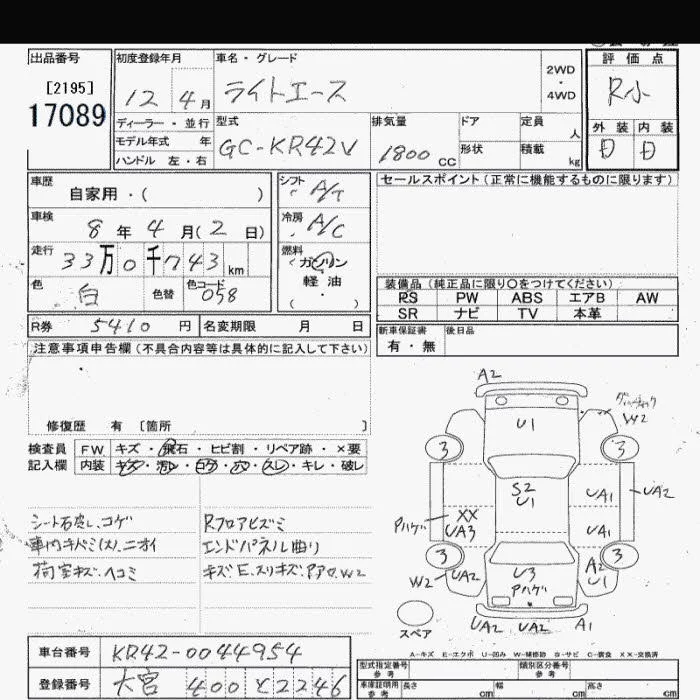 出品番号
[2195]
17089
初度登録年月
12 4月
ディーラー・並行
モデル年式 年
ハンドル 左・右
車名・グレード
ライトエース
2WD
・
4WD
型式
GC-KR42V
排気量
1800 CC
ドア
形状
定員 人
積載 kg
評価点
R小
外装 内装
D D
車歴
自家用・( )
車検
8年 4月(2日)
走行
33万0千743 km
色
白
色替
色コード
058
シフト
A/T
冷房
A/C
燃料
ガソリン
軽油
( ・ )
セールスポイント(正常に機能するものに限ります)
装備品(純正品に限り○をつけてください)
PS PW ABS エアB AW
SR ナビ TV 本革
新車保証書
有・無
後日品
R券 5410 円 名変期限 月 日
注意事項申告欄(不具合内容等は具体的に記入して下さい)
修復歴 有 [箇所 ]
検査員
記入欄
FW キズ・飛石・ヒビ割・リペア跡・×要
内装 キズ・汚レ・コゲ・穴・スレ・キレ・破レ
シート コゲ
車内キバミ(大)、ニオイ
荷室キズ、ヘコミ
Rフロアヒズミ
エンドパネル曲り
A2
U1
W2
3
3
S2
U1
UA1
UA2
Pハゲ
XX
UA3
UA1
3
3
W2
UA2
U3
Pハゲ
A2
U1
UA2
UA2
A1
スペア
A-キズ E-エクボ U-凹み W-補修跡 S-サビ C-腐食 XX-交換済
車台番号 KR42-0044954
登録番号 大宮 400 と 2246
型式指定番号
参考
類別区分番号
参考
車庫証明用
参考
長さ cm
幅 cm
高さ cm